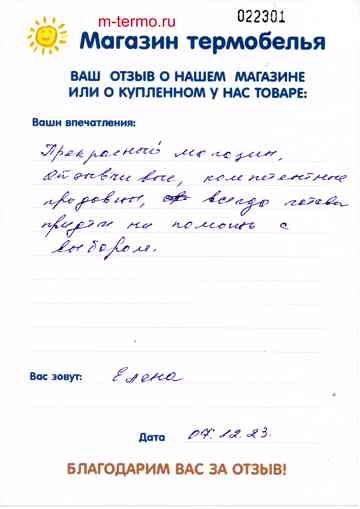 m-termo.ru
022301
Магазин термобелья
ВАШ ОТЗЫВ О НАШЕМ МАГАЗИНЕ
ИЛИ О КУПЛЕННОМ У НАС ТОВАРЕ:
Ваши впечатления:
Прекрасный магазин,
отзывчивые, компетентные
продавцы, всегда готовы
придти на помощь с
выбором.
Вас зовут: Елена
Дата 07.12.23.
БЛАГОДАРИМ ВАС ЗА ОТЗЫВ!